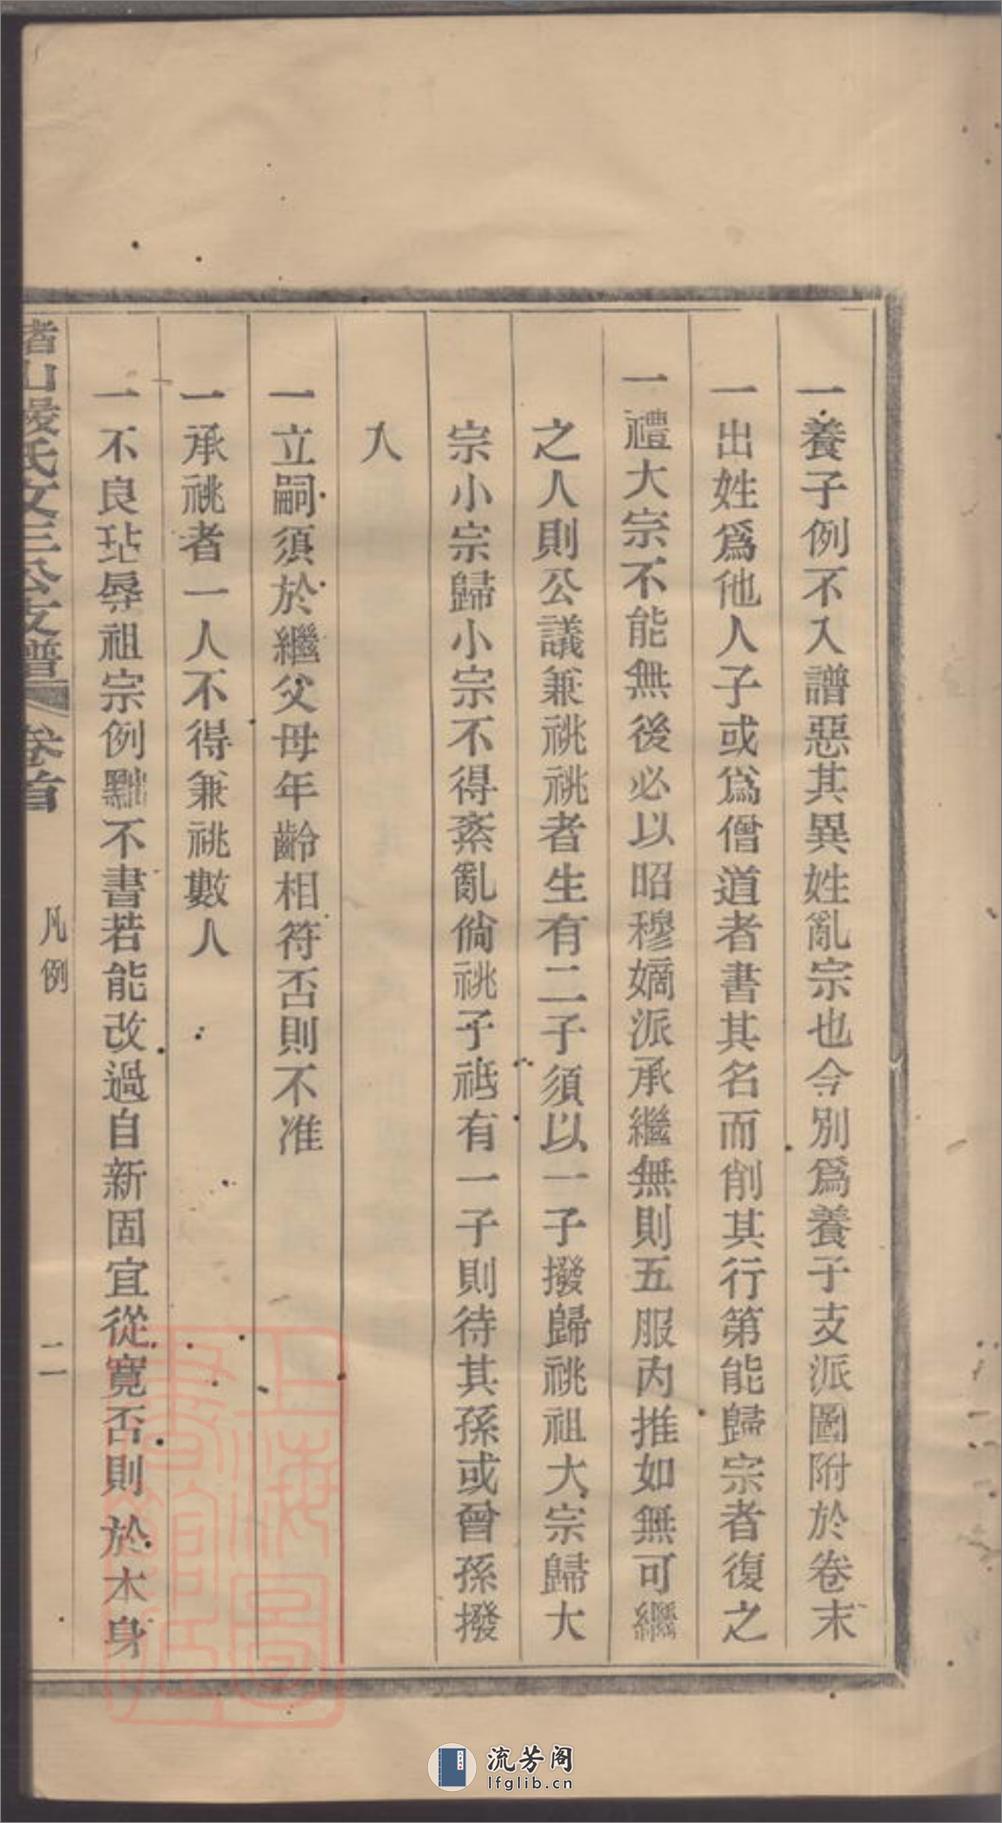 一養子例不入譜惡其異姓亂宗也今別爲養子支派圖附於卷末
一出姓爲他人子或爲僧道者書其名而削其行第能歸宗者復之
一禮大宗不能無後必以昭穆嫡派承繼無則五服內推如無可繼
之人則公議兼祧祧者生有二子須以一子撥歸祧祖大宗歸大
宗小宗歸小宗不得紊亂倘祧子祗有一子則待其孫或曾孫撥
入
一立嗣須於繼父母年齡相符否則不准
一承祧者一人不得兼祧數人
一不良玷辱祖宗例黜不書若能改過自新固宜從寬否則於本身
山嚴氏文三公支譜 卷首 凡例 二
上海圖書館藏
流芳阁
lfglib.cn